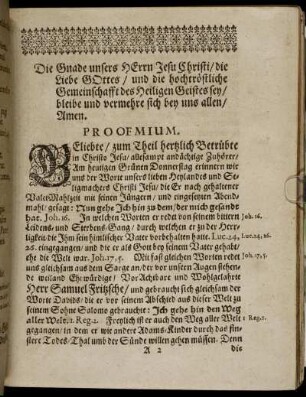 Die Gnade unsers HErrn Jesu Christi/ die
Liebe GOttes/ und die hochtröstliche
Gemeinschafft des Heiligen Geistes sey/
bleibe und vermehre sich bey uns allen/
Amen.
PROOEMIUM.
GEliebte/ zum Theil hertzlich Betrübte
in Christo Jesu/ allesampt andächtige Zuhörer/
Am heutigen Grünen Donnerstag erinnern wir
uns der Worte unsers lieben Heylandes und Se-
ligmachers Christi Jesu/ die Er nach gehaltener
Valet-Mahlzeit mit seinen Jüngern/ und eingesetzten Abend-
mahl/ gesagt: Nun gehe ich hin zu dem/ der mich gesandt
hat. Joh. 16. In welchen Worten er redet von seinem bittern Joh. 16.
Leidens- und Sterbens-Gang/ durch welchen er zu der Herr-
ligkeit die Ihm sein himlischer Vater vorbehalten hatte. Luc. 24, Luc. 24, 26.
26. eingegangen/ und die er als Gott bey seinem Vater gehabt/
ehe die Welt war. Joh. 17. 5. Mit fast gleichen Worten redet Joh. 17, 5.
uns gleichsam aus dem Sarge an/ der vor unsern Augen stehen-
de weiland Ehrwürdige/ VorAchtbare und Wohlgelahrte
Herr Samuel Fritzsche/ und gebraucht sich gleichsam der
Worte Davids/ die er vor seinem Abschied aus dieser Welt zu
seinem Sohne Salomo gebraucht: Ich gehe hin den Weg
aller Welt. 1. Reg. 2. Freylich ist er auch den Weg aller Welt 1. Reg. 2.
gegangen/ in dem er wie andere Adams-Kinder durch das fin-
stere Todes-Thal umb der Sünde willen gehen müssen. Denn
A 2 die